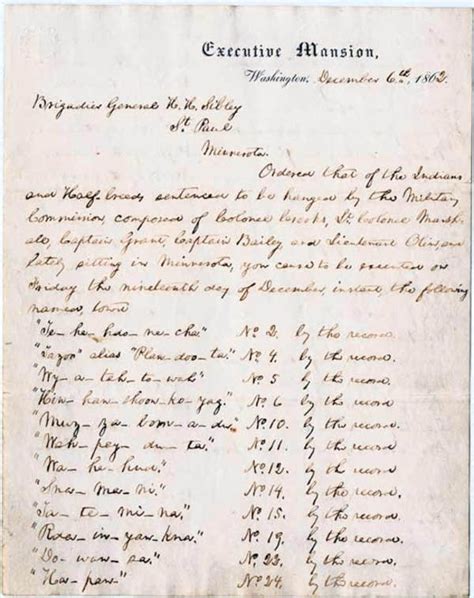 Executive Mansion,
Washington, December 6th, 1862.
Brigadier General H. H. Sibley
St. Paul
Minnesota.
Ordered that of the Indians
and Half-breeds sentenced to be hanged by the Military
Commission, composed of Colonel Crooks, Lt. Colonel Marsh-
all, Captain Grant, Captain Bailey and Lieutenant Olin, and
lately sitting in Minnesota, you cause to be executed on
Friday the nineteenth day of December, instant, the following
named, towit
"Te-he-hdo-ne-cha." No 2. by the record.
"Tazoo" alias "Plan-doo-ta." No 4. by the record.
"Wy-a-tah-to-wah" No 5 by the record.
"Hin-han-shoon-ko-yag." No 6 by the record.
"Muz-za-bom-a-du." No 10. by the record.
"Wah-pey-du-ta." No 11. by the record.
"Wa-he-hud." No 12. by the record.
"Sna-ma-ni." No 14. by the record.
"Ta-te-mi-na." No 15. by the record.
"Rda-in-yan-kna." No 19. by the record.
"Do-wan-sa." No 22. by the record.
"Ha-pan." No 24. by the record.